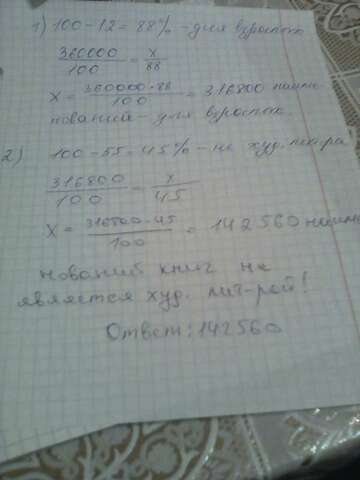 1) 100-12=88% - для взрослых
360000/100 = x/88
x = 360000·88/100 = 316800 наиме-
нований - для взрослых.
2) 100-55=45% - не худ. лит-ра
316800/100 = x/45
x = 316800·45/100 = 142560 наиме
нований книг не
является худ. лит-рой!
Ответ: 142560